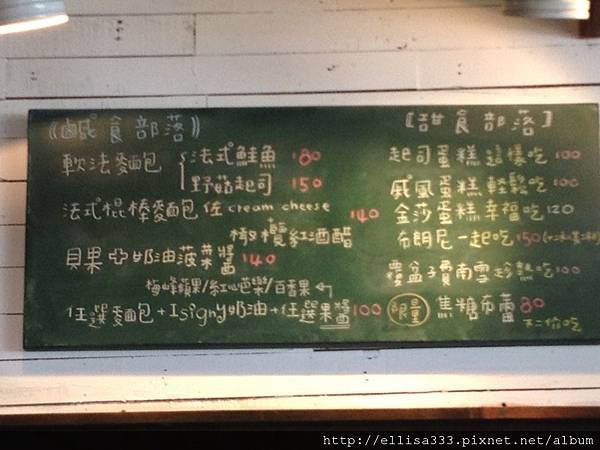 《鹹食部落》
軟法麵包 法式鮭魚 180
野菇起司 150
法式棍棒麵包 佐 cream cheese 140
橄欖紅酒醋
貝果 奶油菠菜醬 140
梅峰蘋果/紅心芭樂/百香果
任選麵包+Isigny奶油+任選果醬 100
【甜食部落】
起司蛋糕 這樣吃 100
戚風蛋糕 輕鬆吃 100
金莎蛋糕 幸福吃 120
布朗尼 一起吃 150
覆盆子費南雪 趁熱吃 100
限量 焦糖布蕾 80
不二價吃
http://ellisa333.pixnet.net/album